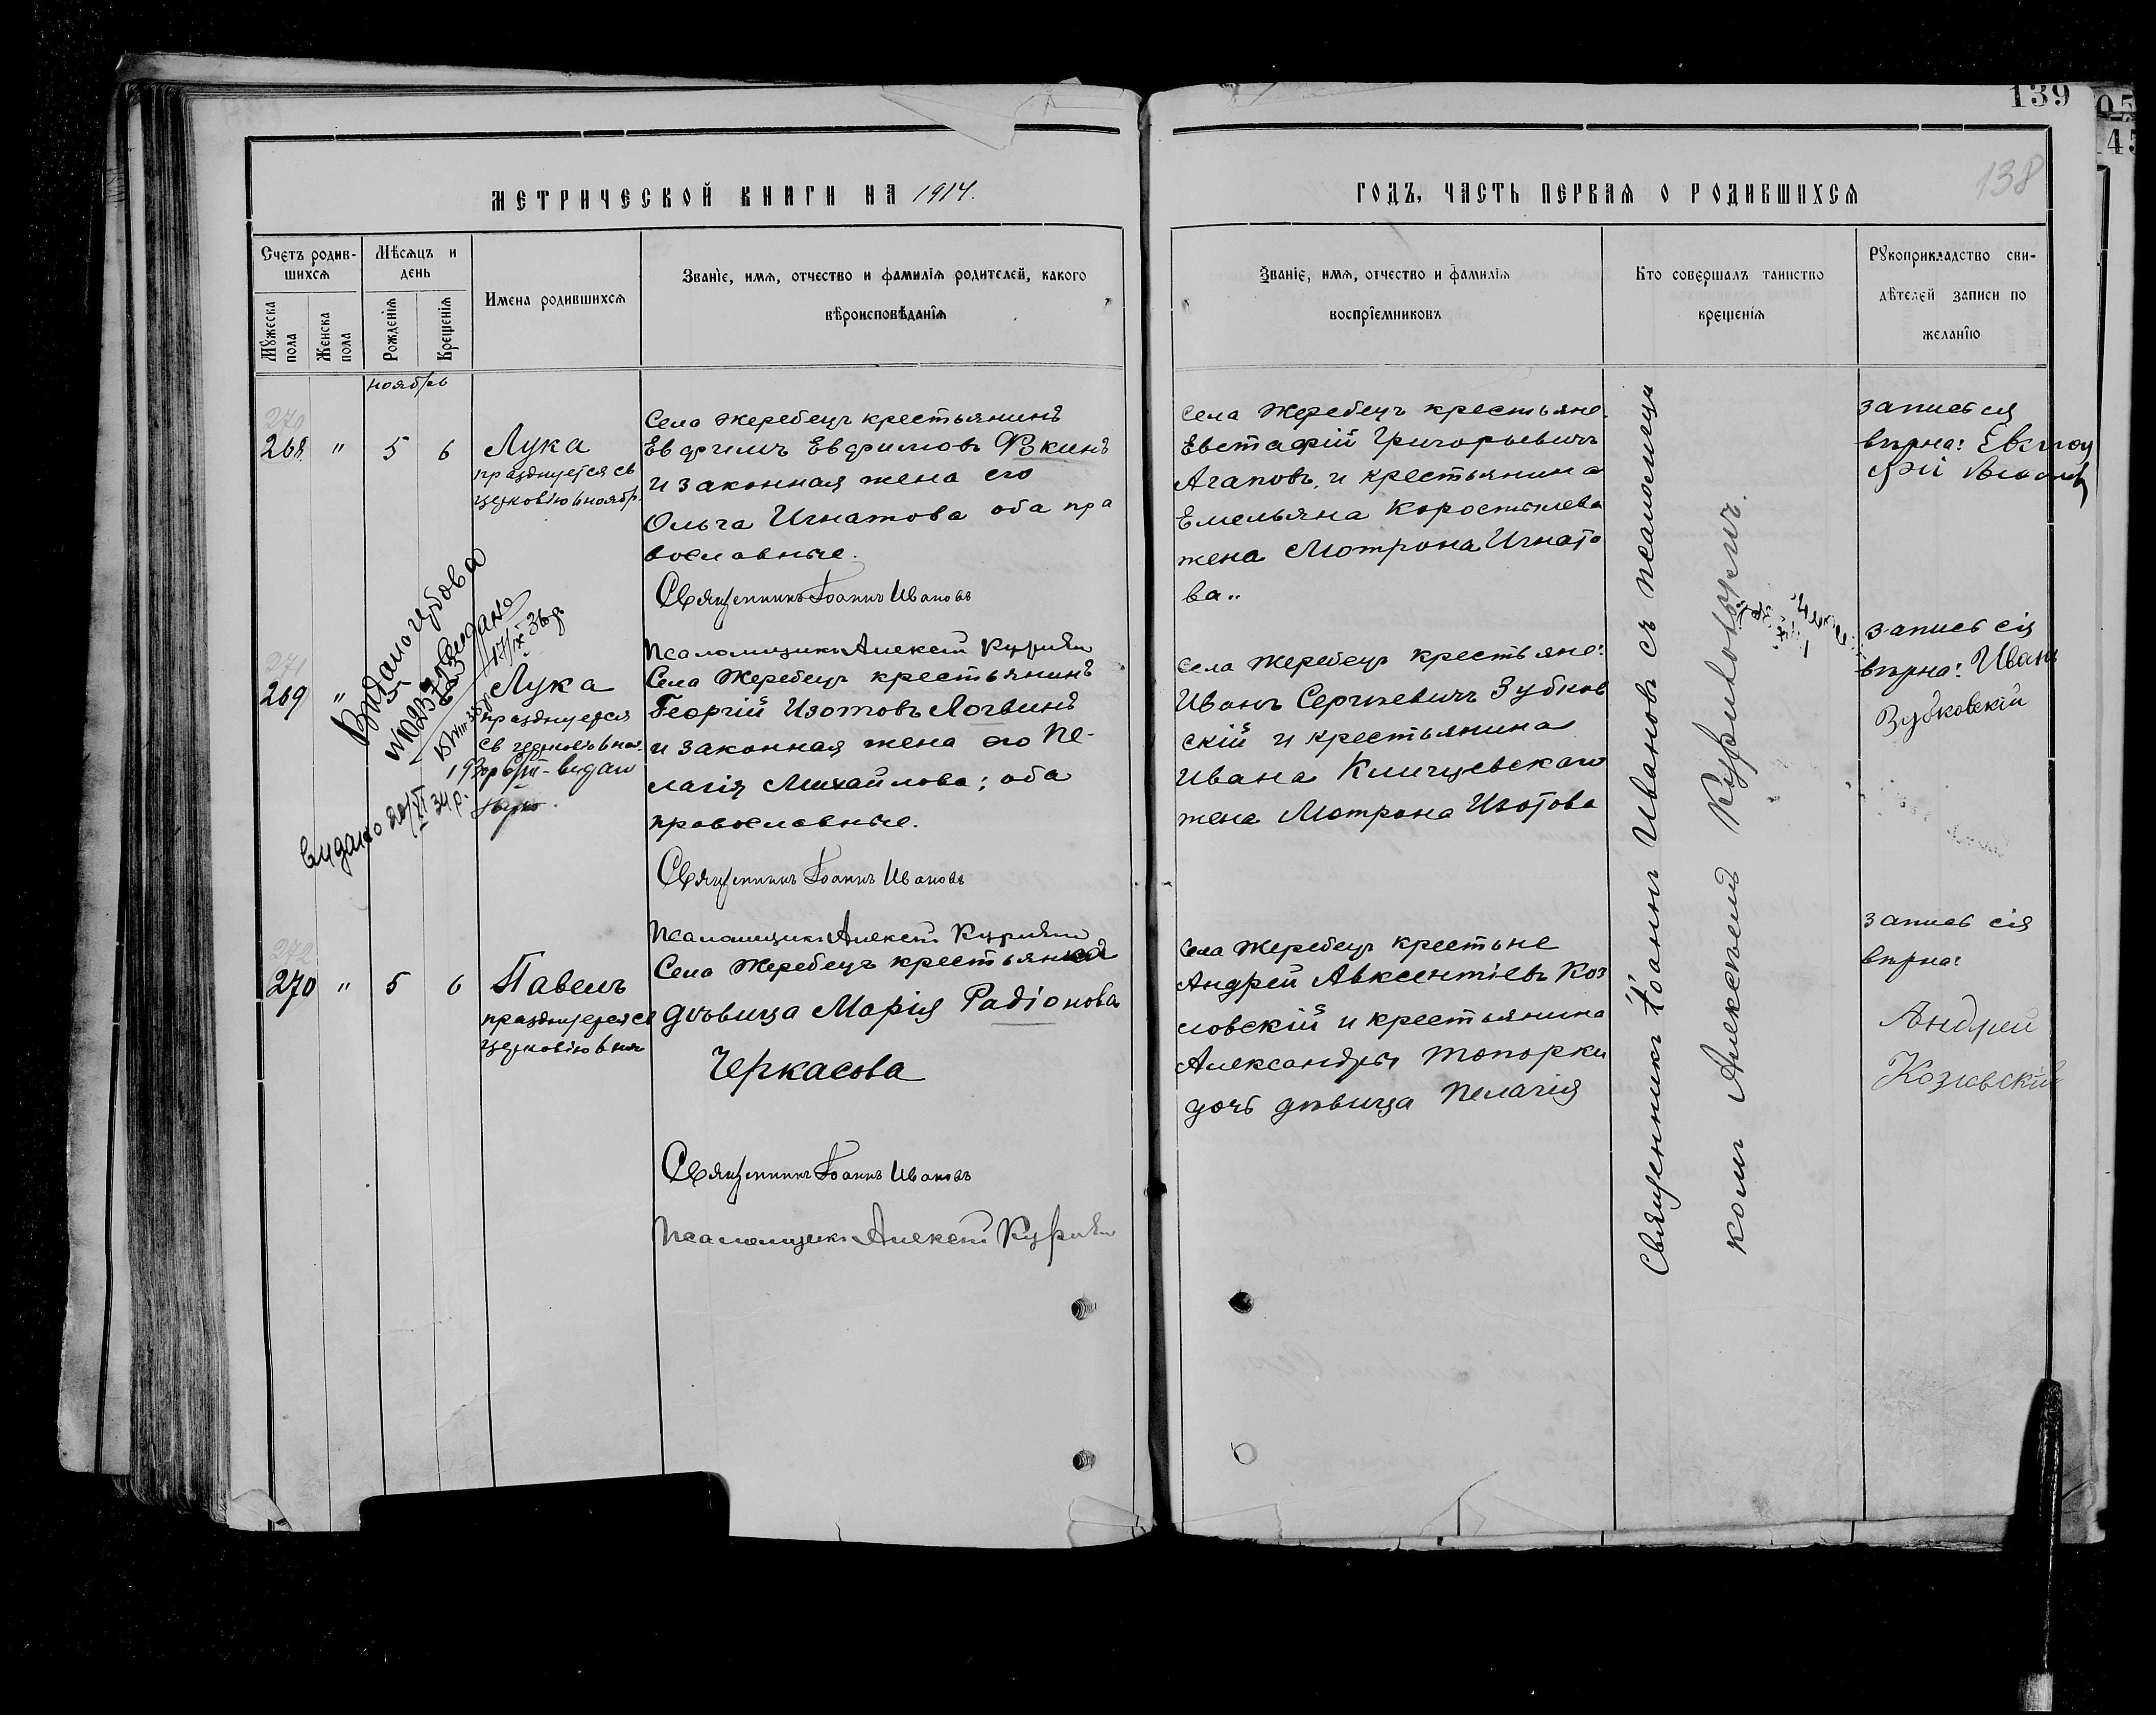 139
138
МЕТРИЧЕСКОЙ КНИГИ НА 1914.
ГОДЪ, ЧАСТЬ ПЕРВАЯ О РОДИВШИХСЯ
Счетъ родив-
шихся
Мужеска пола
Женска пола
Мѣсяцъ и
день
Рожденія
Крещенія
Имена родившихся
Званіе, имя, отчество и фамилія родителей, какого
вѣроисповѣданія
Званіе, имя, отчество и фамилія
воспріемниковъ
Кто совершалъ таинство
крещенія
Рукоприкладство сви-
дѣтелей записи по
желанію
ноябрь
270
268 " 5 6 Лука
празднуется св
церковію 6 нояб
Села Жеребецъ крестьянинъ
Евфимъ Евфимовъ
и законная жена его
Ольга Игнатова оба пра
вославные.
Священникъ Іоаннъ Ивановъ
Псаломщикъ Алексей
Села Жеребецъ крестьяне
Евстафій Григорьевичъ
Агаповъ, и крестьянина
Емельяна Коростылева
жена Мотрона Игнато
ва..
запись сія
вѣрна:
271
269 " 5 Лука
празднуется
св церковію
Видано
Видано 20/VI 34 р.
Села Жеребецъ крестьянинъ
Георгій Изотовъ Логвинъ
и законная жена его Пе-
лагія Михайлова; оба
православные.
Священникъ Іоаннъ Ивановъ
Псаломщикъ Алексей
Села Жеребецъ крестьяне:
Иванъ Сергѣевичъ Зубков
скій и крестьянина
Ивана
жена Мотрона Изотова
запись сія
вѣрна: Иванъ
Зубковскій
272
270 " 5 6 Павелъ
празднуется св
церковію 6 ноя
Села Жеребецъ крестьянка
дѣвица Марія Радіонова
Черкасова
Священникъ Іоаннъ Ивановъ
Псаломщикъ Алексей
Села Жеребецъ крестьне
Андрей Авксентіевъ Коз
ловскій и крестьянина
Александра Топорки
дочь дѣвица Пелагія
запись сія
вѣрна:
Андрей
Козловскій
Священникъ Іоаннъ Ивановъ съ псаломщи
комъ Алексѣемъ